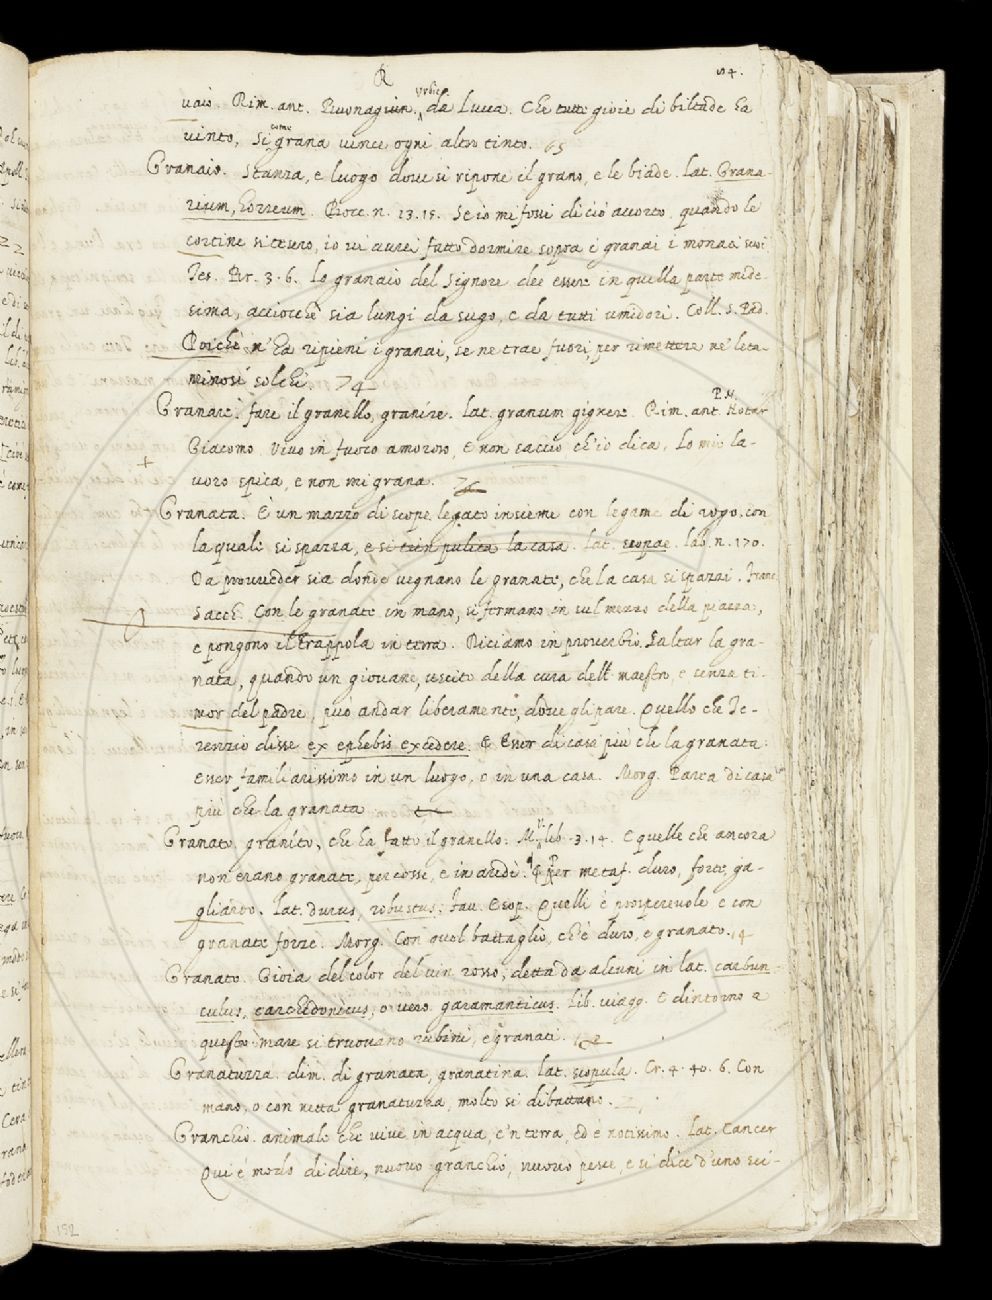 R 84.
vaio. Rim. ant. Buonagiun. Urbic. da Lucca. Che tutte gioie di biltade ha
vinto, Sì come grana vince ogni altro tinto. 65
Granaio. Stanza, e luogo dove si ripone il grano, e le biade. Lat. Grana-
rium, horreum. Bocc. n. 13.15. Se io mi fossi di ciò accorto, quando le
cortine si tesero, io vi aurei fatto dormire sopra i granai i monaci suoi
Tes. Br. 3.6. Lo granaio del Signore dee essere in quella parte mede-
sima, acciocchè sia lungi da sugo, e da tutti umidori. Coll. S. Pad.
Poichè n'ha ripieni i granai, se ne trae fuori, per rimettere ne' leta-
minosi solchi. 74
Granare. fare il granello, granire. Lat. granum gignere. Rim. ant. P. N. Notar
Giacomo. Vivo in fuoco amoroso, E non saccio ch'io dica. Lo mio la-
voro spica, e non mi grana.
Granata. È un mazzo di scope legato insieme con legame di rogo. con
la quale si spazza, e si tien pulita la casa. Lat. scopae. Lab. n. 170.
Da provveder sia donde vegnano le granate, che la casa si spazzi. Franc.
Sacch. Con le granate in mano, si fermano in sul mezzo della piazza,
e pongono il trappola in terra. Diciamo in proverbio. Saltar la gra-
nata, quando un giovane, uscito della cura dell maestro, e senza ti-
mor del padre, può andar liberamente, dove gli pare. Quello che Te-
renzio disse ex ephebis excedere. E Esser di casa più che la granata:
esser familiarissimo in un luogo, e in una casa. Morg. Parea di casa
più che la granata
Granato, granito, che ha fatto il granello. M. V. lib. 3.14. E quelle che ancora
non erano granate, percosse, e in aridì. ¶ Per metaf. duro, forte, ga-
gliardo. Lat. durus, robustus. Fav. Esop. Quelli è prosperevole e con
granate forze. Morg. Con quel battaglio, ch'è duro, e granato. 14
Granato. Gioia del color del vin rosso, detta da alcuni in lat. carbun-
culus, carchedonicus, ovvero garamanticus. Lib. viagg. E dintorno a
questo mare si truovano rubini, e granati.
Granatuzza. dim. di granata, granatina. Lat. scopula. Cr. 4. 40. 6. Con
mano, o con netta granatuzza, molto si dibattano.
Granchio. animale che vive in acqua, e 'n terra, ed è notissimo. Lat. Cancer
Qui è modo di dire, nuovo granchio, nuovo pesce, e si dice d'uno sci-
152